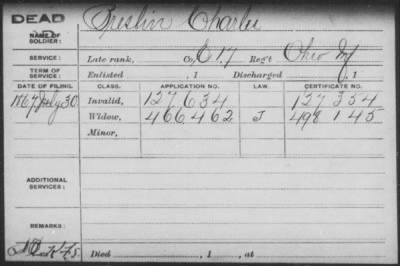 DEAD
NAME OF SOLDIER: Charles
SERVICE: Late rank, Co. E 17 Reg't Ohio Inf
TERM OF SERVICE: Enlisted , 1 Discharged , 1
DATE OF FILING. CLASS. APPLICATION NO. LAW. CERTIFICATE NO.
1867 July 30 Invalid, 127634 127354
Widow, 466462 J 498145
Minor,
ADDITIONAL SERVICES:
REMARKS:
Died , 1 , at